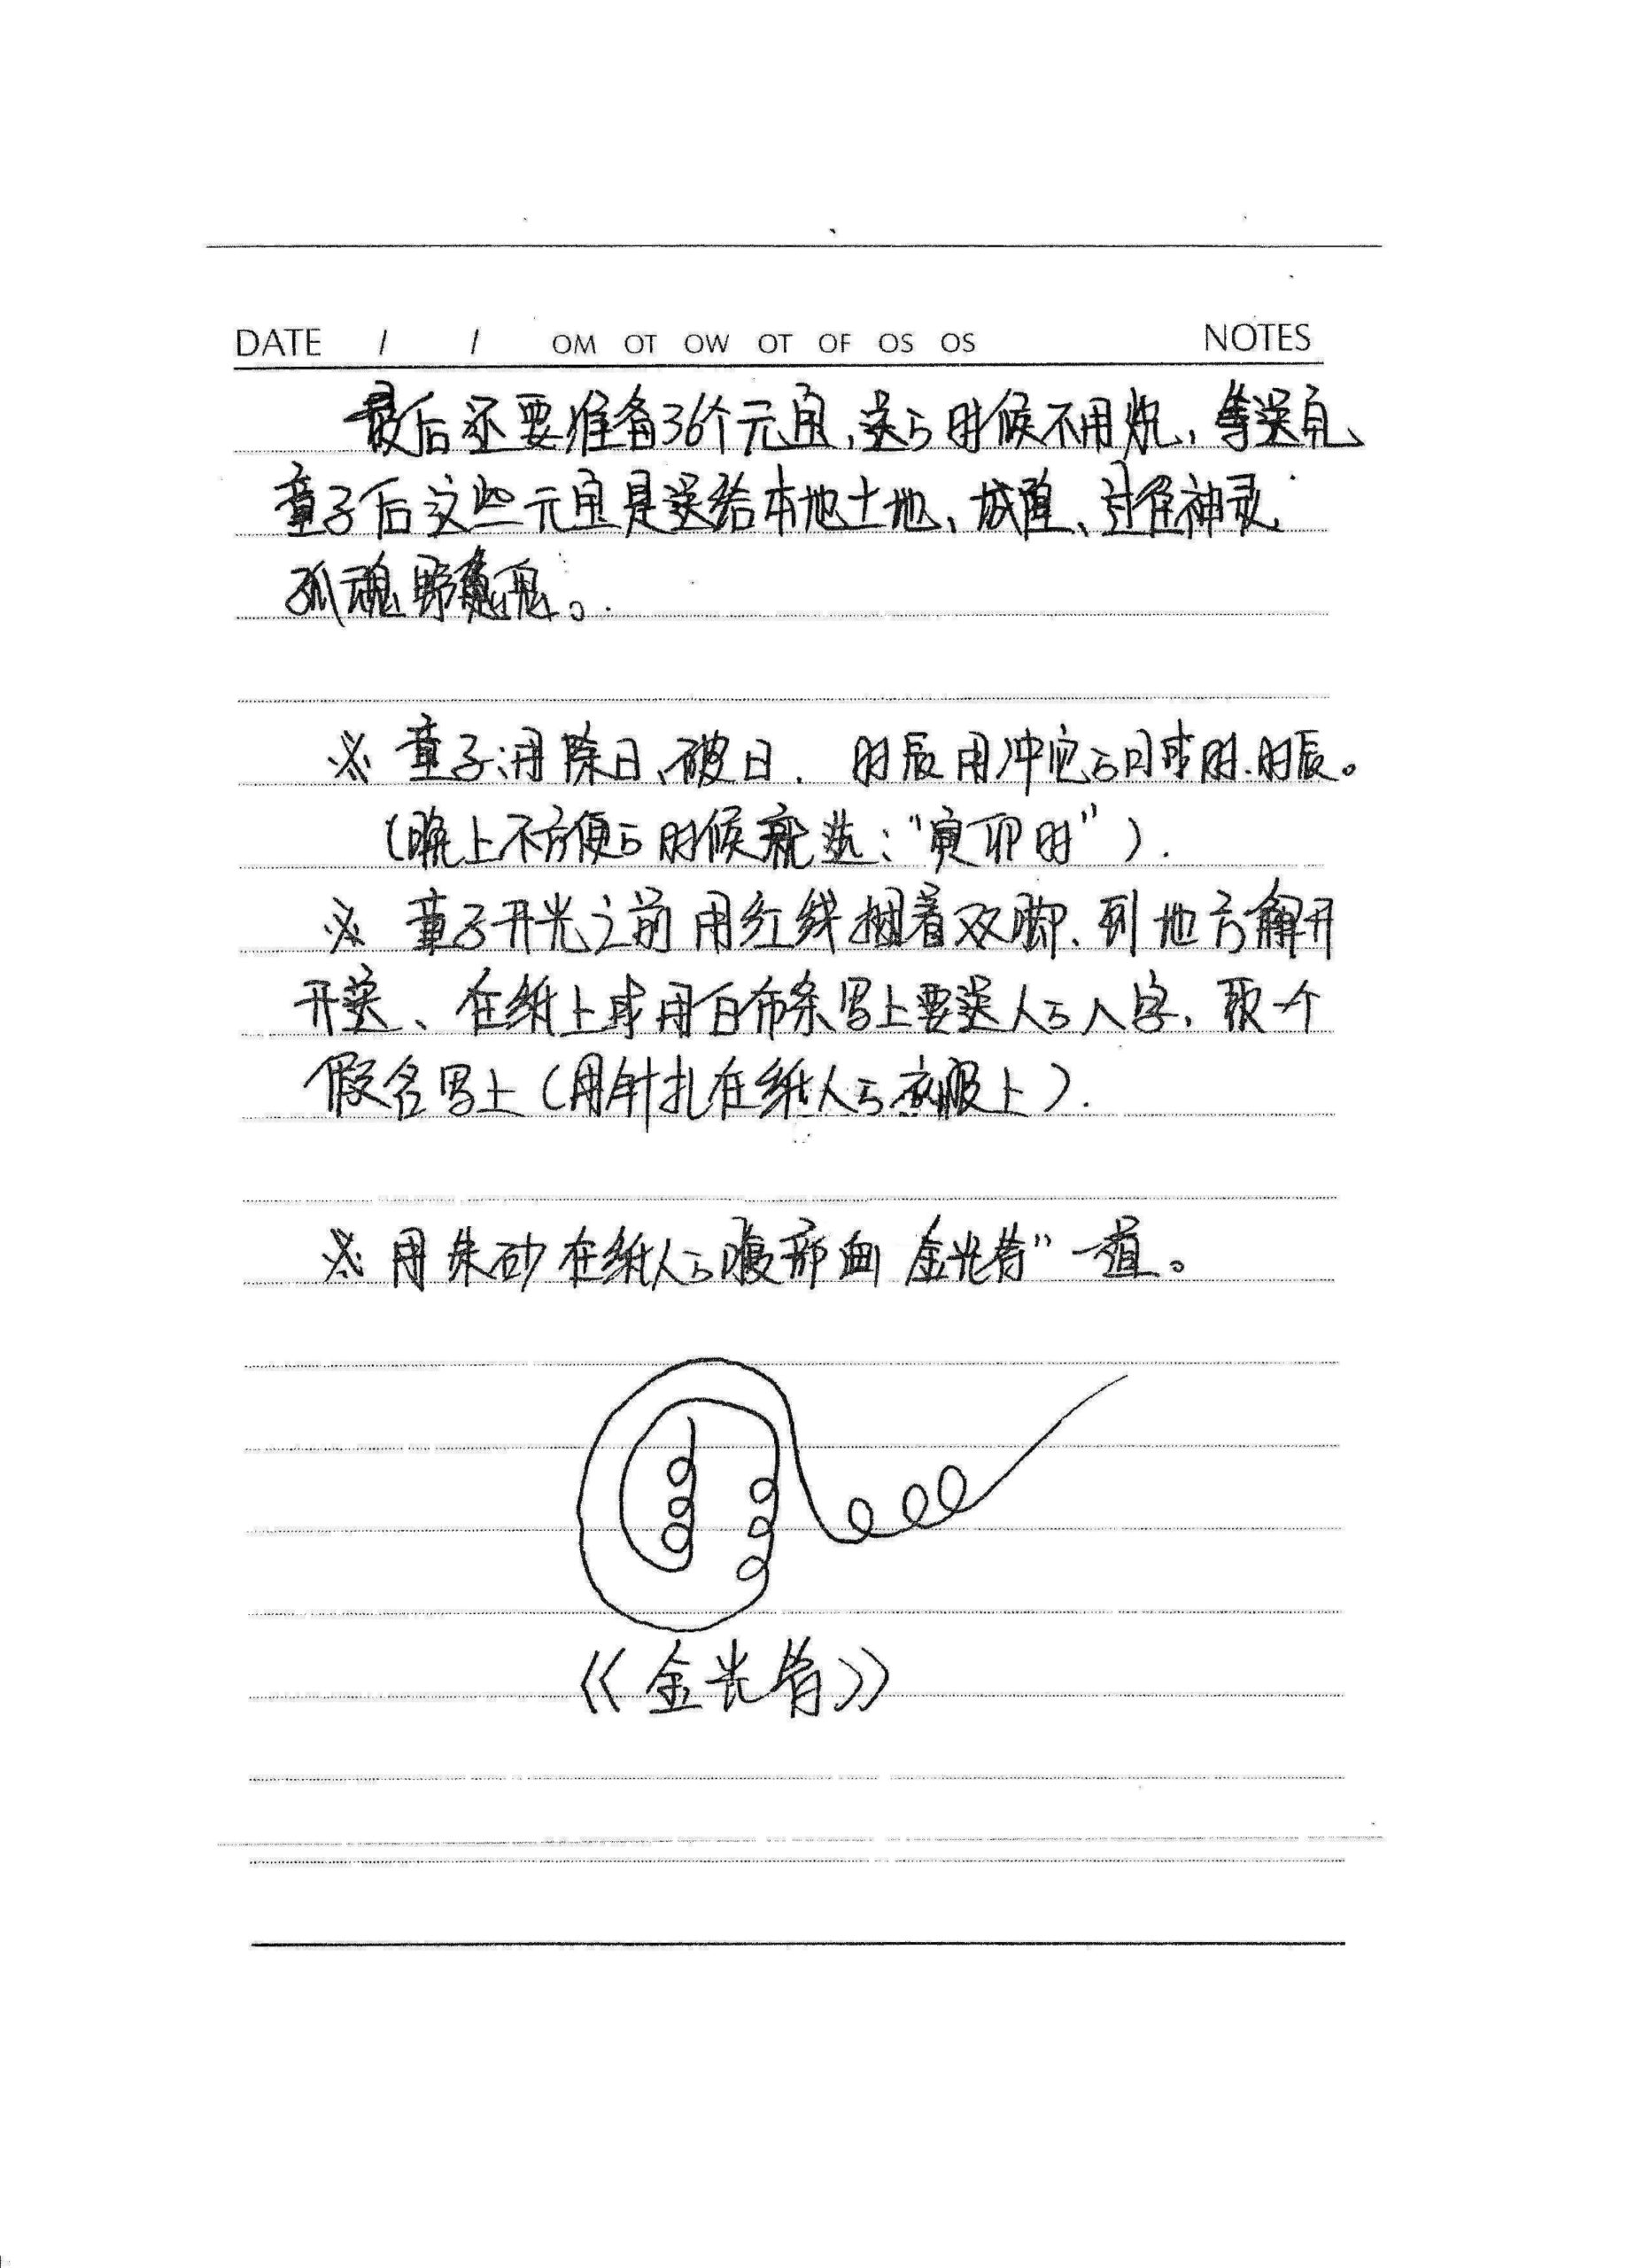 DATE / / OM OT OW OT OF OS OS NOTES
最后还要准备36个元宝,送的时候不用烧,等送完
童子后这些元宝是送给本地土地、城隍、过往神灵
孤魂野鬼。
※ 童子:用除日、破日. 时辰用冲它的日或时.时辰。
(晚上不方便的时候就选:“寅卯时”).
※ 童子开光之前用红线捆着双脚、到地方解开
开送、在纸上或用白布条写上要送人的八字,取一个
假名写上(用针扎在纸人的衣服上).
※ 用朱砂在纸人的腹部画 金光符”一道。
《金光符》